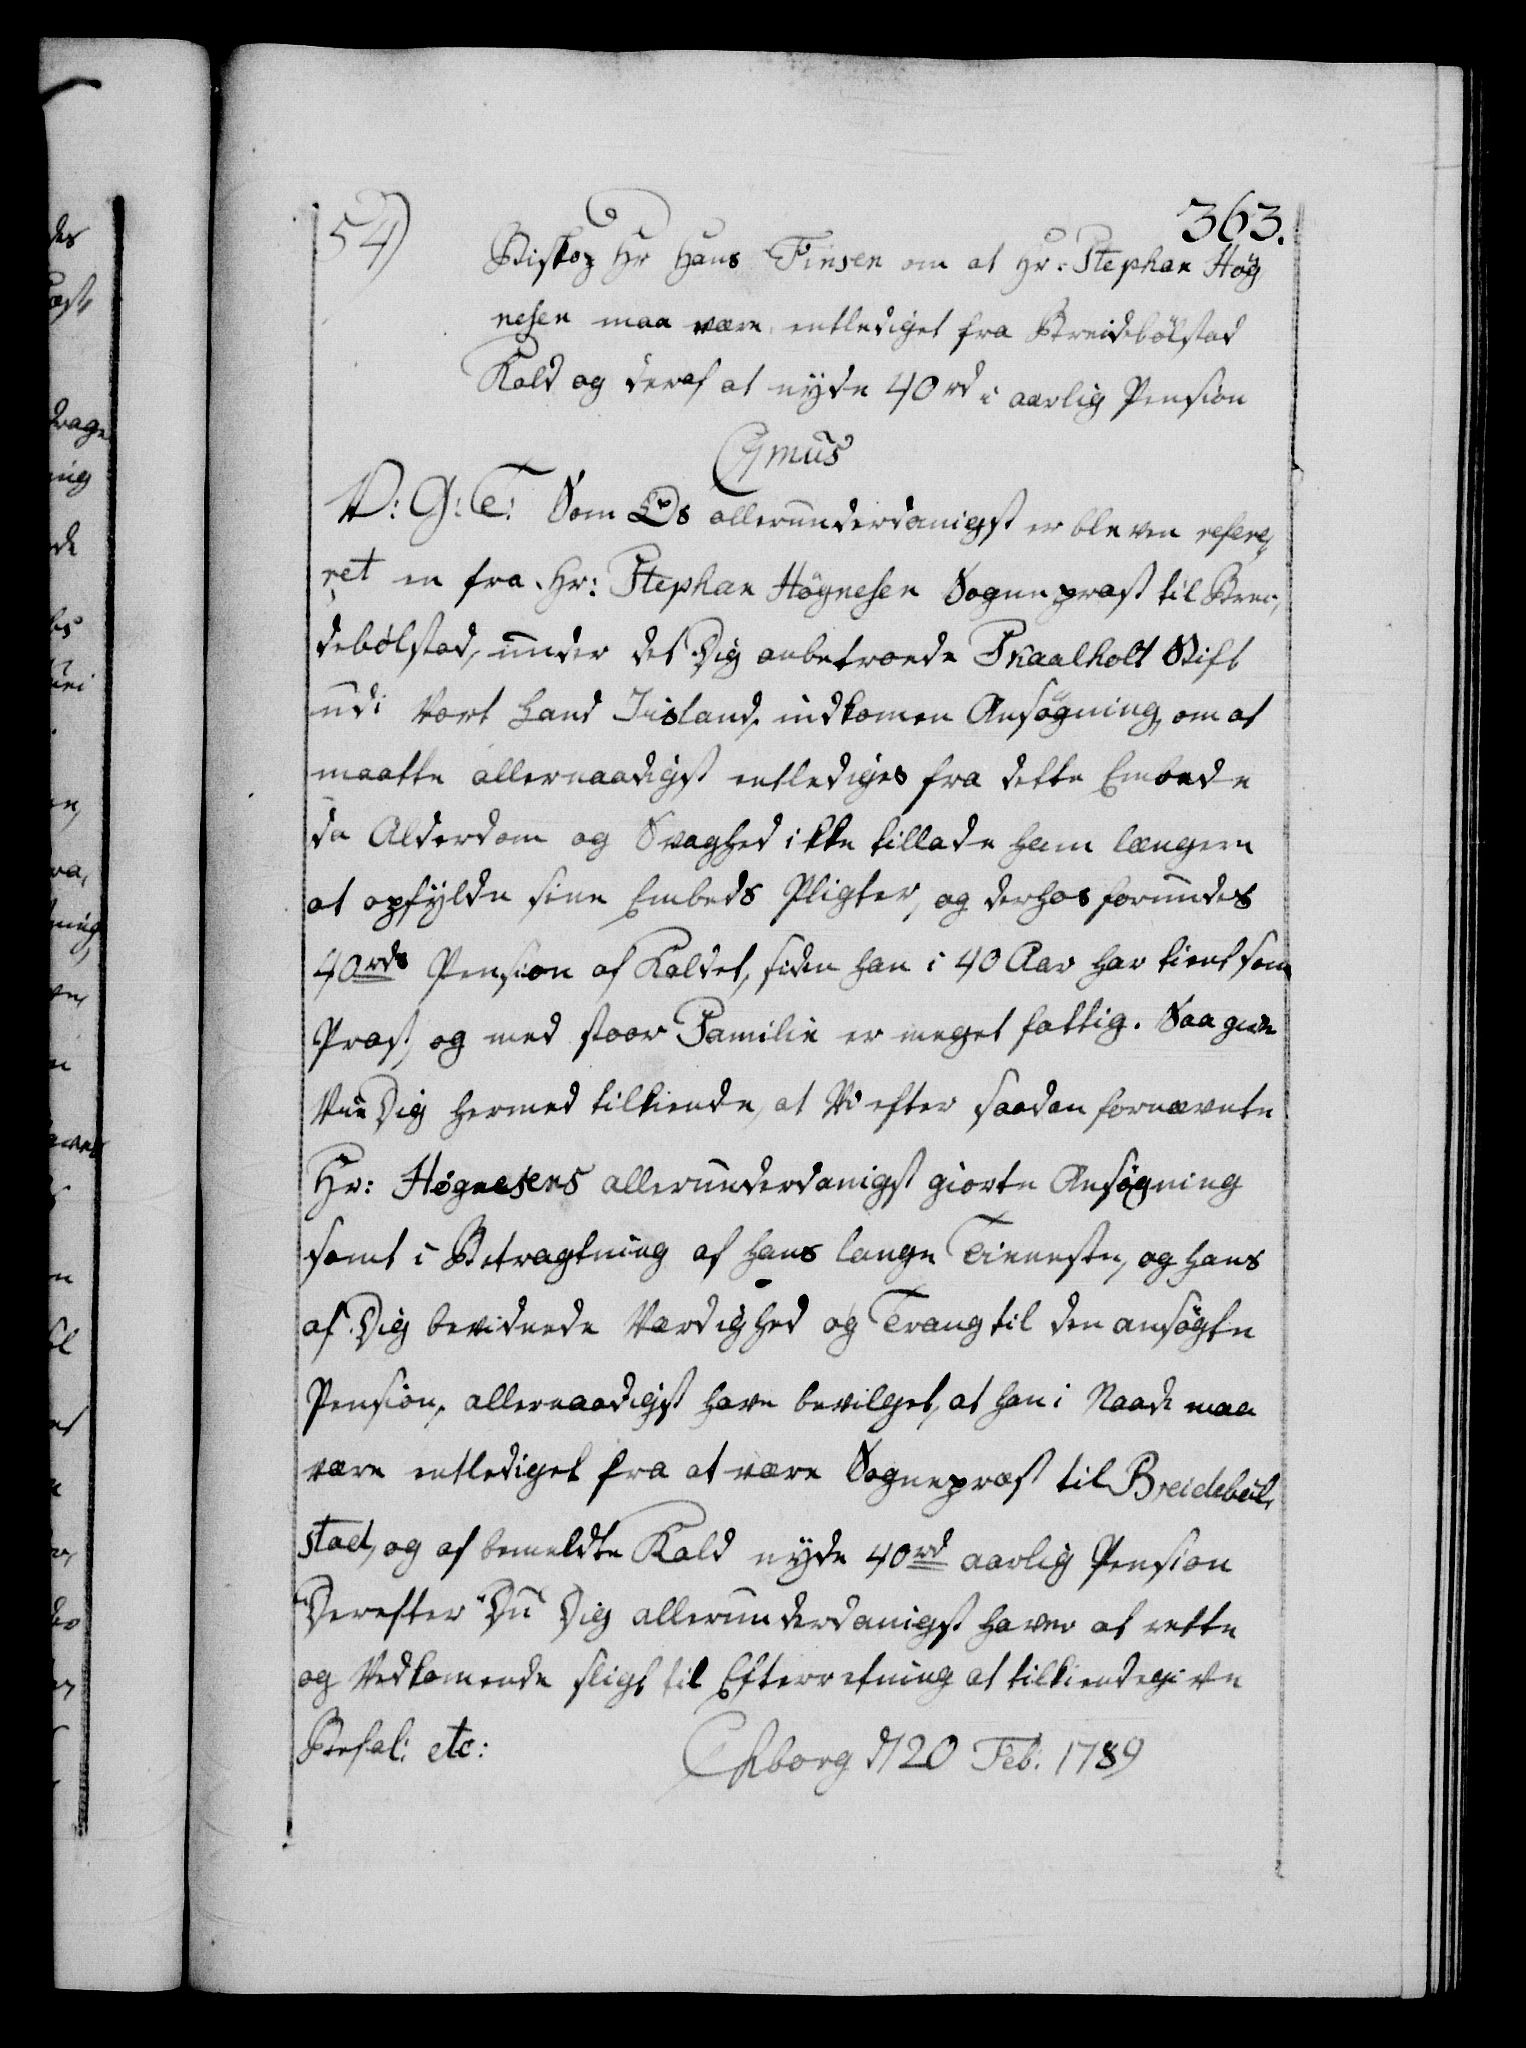 363.
54)
Biskop Hr Hans Finsen om at Hr: Stephan Høg
nesen maa være entlediget fra Breidebölstad
Kald og deraf at nyde 40 rd i aarlig Pension
C7mus
V: G: T: Som Os allerunderdanigst er bleven refere,
ret en fra Hr: Stephan Högnesen Sognepræst til Brei,
debölstad, under det Dig anbetroede Skaalholt Stift
udi Vort Land Iisland, indkomen Ansøgning, om at
maatte allernaadigst entlediges fra dette Embede
da Alderdom og Svaghed ikke tillade ham længere
at opfylde sine Embeds Pligter, og derhos forundes
40rds Pension af Kaldet, siden han i 40 Aar har tient som
Præst, og med stoor Familie er meget fattig. Saa give
Vi Dig hermed tilkiende, at Vi efter saadan fornævnte
Hr: Høgnesens allerunderdanigst giorte Ansøgning
samt i Betragtning af hans lange Tieneste, og hans
af Dig bevidnede Værdighed og Trang til den ansøgte
Pension, allernaadigst have bevilget, at han i Naade maa
være entlediget fra at være Sognepræst til Breidebøl,
stad, og af bemeldte Kald nyde 40rd aarlig Pension
Derefter Du Dig allerunderdanigst haver at rette
og Vedkomende sligt til Efterretning at tilkiendegive
Befal: etc: Chborg d 20 Feb: 1789